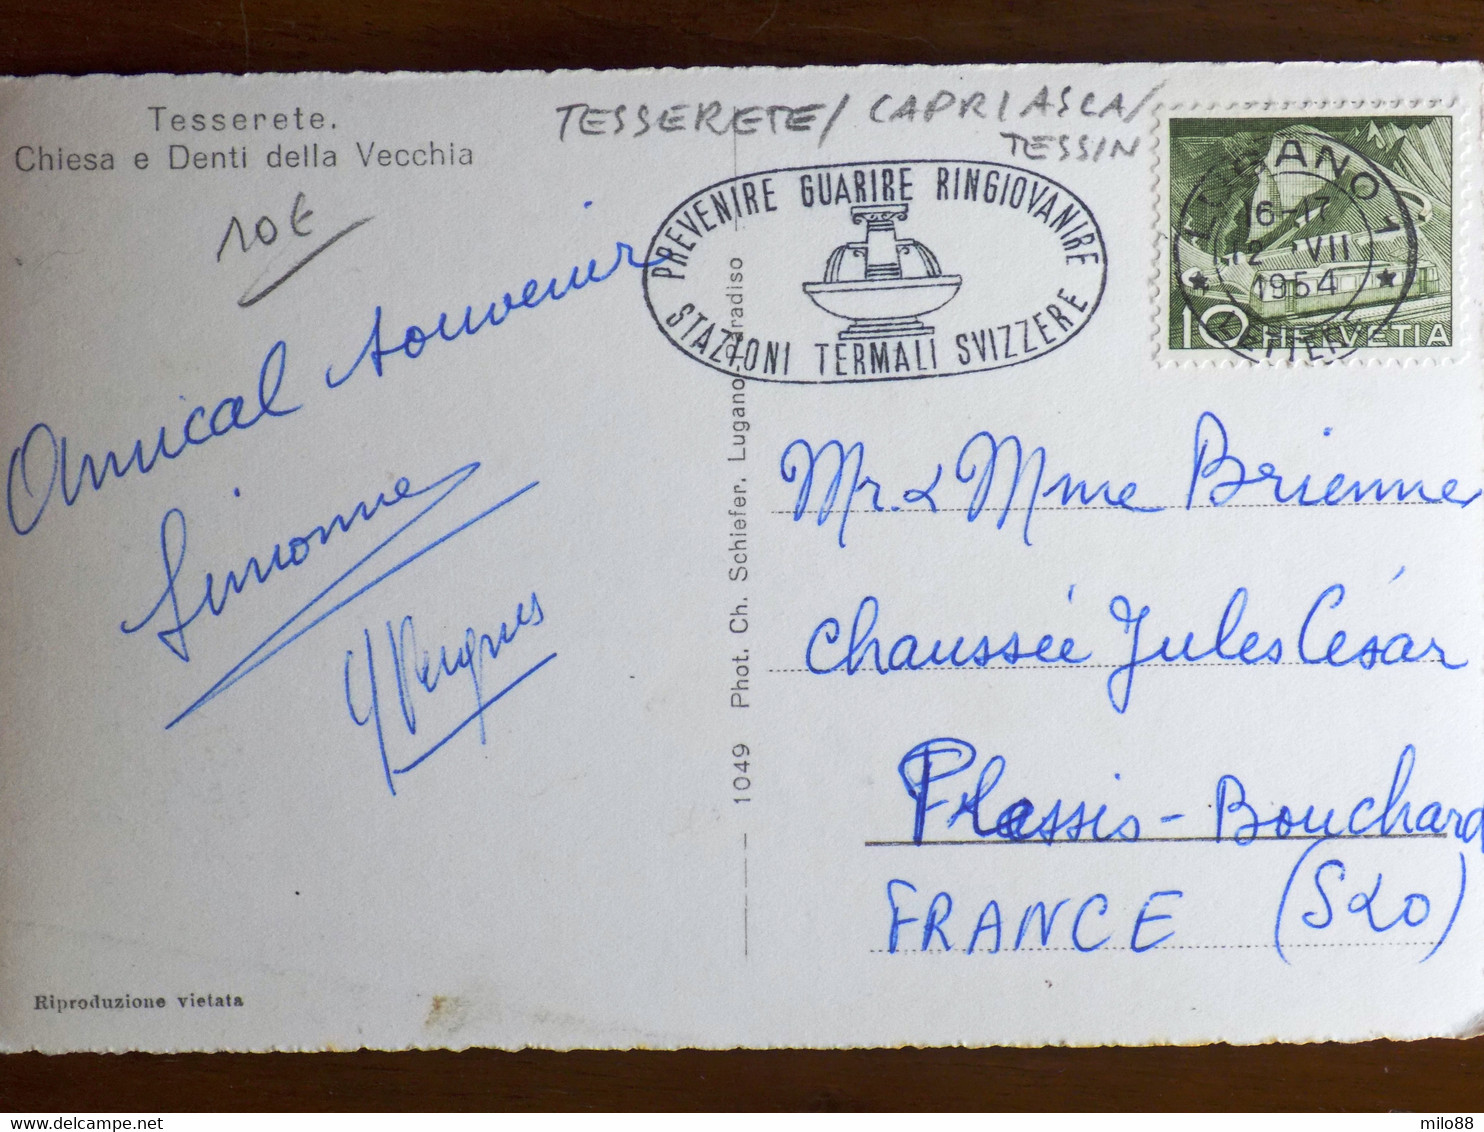 Tesserete.
Chiesa e Denti della Vecchia
10€
TESSERETE/ CAPRIASCA/
TESSIN
PREVENIRE GUARIRE RINGIOVANIRE
STAZIONI TERMALI SVIZZERE
LUGANO 1
16-17
12 VII
1954
10 HELVETIA
Amical souvenir
Simone
1049 Phot. Ch. Schiefer. Lugano-Paradiso
Mr. & Mme Brienne
Chaussée Jules César
Plessis-Bouchard
FRANCE (S&O)
Riproduzione vietata
milo88